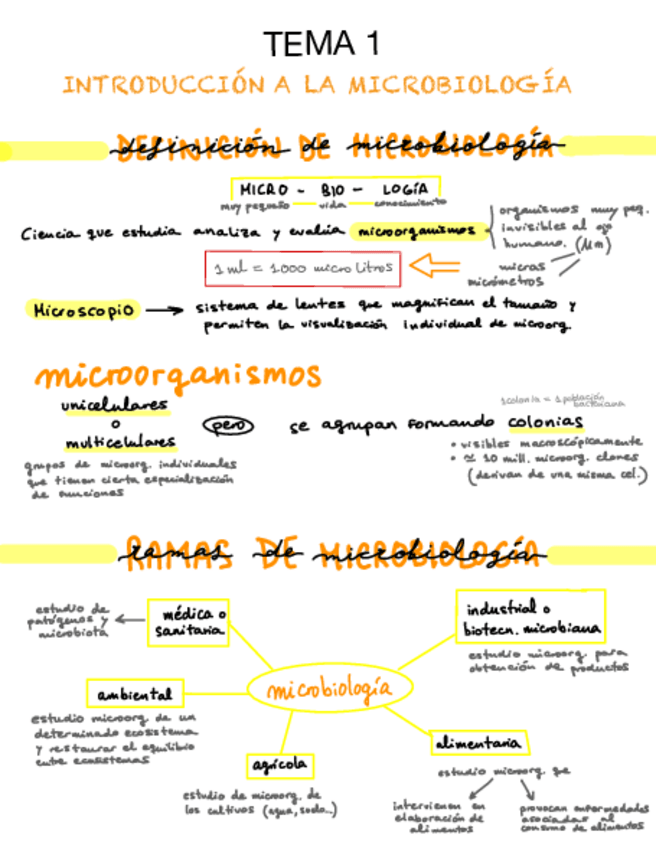 TEMA 1
INTRODUCCIÓN A LA MICROBIOLOGÍA
definición de microbiología
MICRO - BIO - LOGÍA
muy pequeño vida conocimiento
Ciencia que estudia analiza y evalúa microorganismos
organismos muy peq.
invisibles al ojo
humano. (μm)
micras
micrómetros
1 ml = 1000 micro litros
Microscopio → sistema de lentes que magnifican el tamaño y
permiten la visualización individual de microorg.
microorganismos
unicelulares
o
multicelulares
grupos de microorg. individuales
que tienen cierta especialización
de funciones
pero
se agrupan formando colonias
1 colonia = 1 población
bacteriana
• visibles macroscópicamente
• ≃ 10 mill. microorg. clones
(derivan de una misma cel.)
ramas de microbiología
microbiología
médica o
sanitaria
estudio de
patógenos y
microbiota
industrial o
biotecn. microbiana
estudio microorg. para
obtención de productos
ambiental
estudio microorg. de un
determinado ecosistema
y restaurar el equilibrio
entre ecosistemas
agrícola
estudio de microorg. de
los cultivos (agua, suelo...)
alimentaria
estudio microorg. que
intervienen en
elaboración de
alimentos
provocan enfermedades
asociadas al
consumo de alimentos